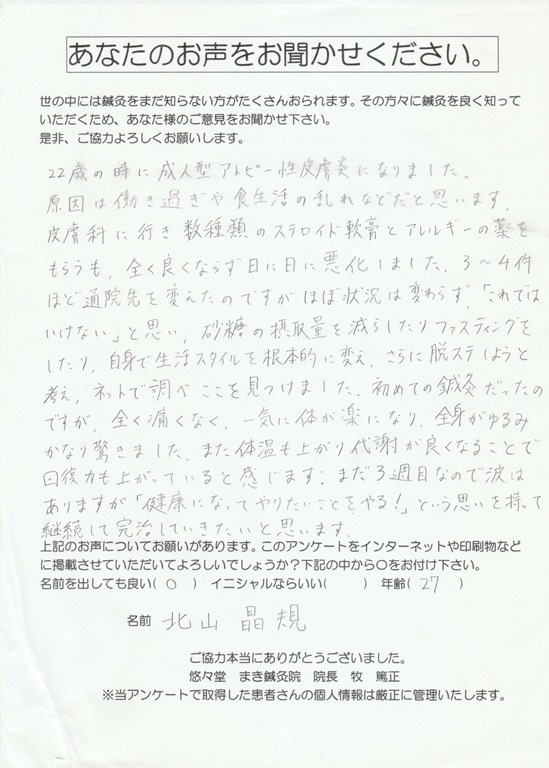 あなたのお声をお聞かせください。
世の中には鍼灸をまだ知らない方がたくさんおられます。その方々に鍼灸を良く知って
いただくため、あなた様のご意見をお聞かせ下さい。
是非、ご協力よろしくお願いします。
22歳の時に成人型アトピー性皮膚炎になりました。
原因は働き過ぎや食生活の乱れなどだと思います。
皮膚科に行き数種類のステロイド軟膏とアレルギーの薬を
もらうも、全く良くならず日に日に悪化しました。3〜4件
ほど通院先を変えたのですがほぼ状況は変わらず、「これでは
いけない」と思い、砂糖の摂取量を減らしたりファスティングを
したり、自身で生活スタイルを根本的に変え、さらに脱ステしようと
考え、ネットで調べここを見つけました。初めての鍼灸だったの
ですが、全く痛くなく、一気に体が楽になり、全身がゆるみ
かなり驚きました。また体温も上がり代謝が良くなることで
回復力も上がっていると感じます。まだ3週目なので波は
ありますが「健康になってやりたいことをやる!」という思いを持って
継続して完治していきたいと思います。
上記のお声についてお願いがあります。このアンケートをインターネットや印刷物など
に掲載させていただいてよろしいでしょうか？下記の中から〇をお付け下さい。
名前を出しても良い( ○ ) イニシャルならいい( ) 年齢( 27 )
名前 北山 晶規
ご協力本当にありがとうございました。
悠々堂 まき鍼灸院 院長 牧 篤正
※当アンケートで取得した患者さんの個人情報は厳正に管理いたします。